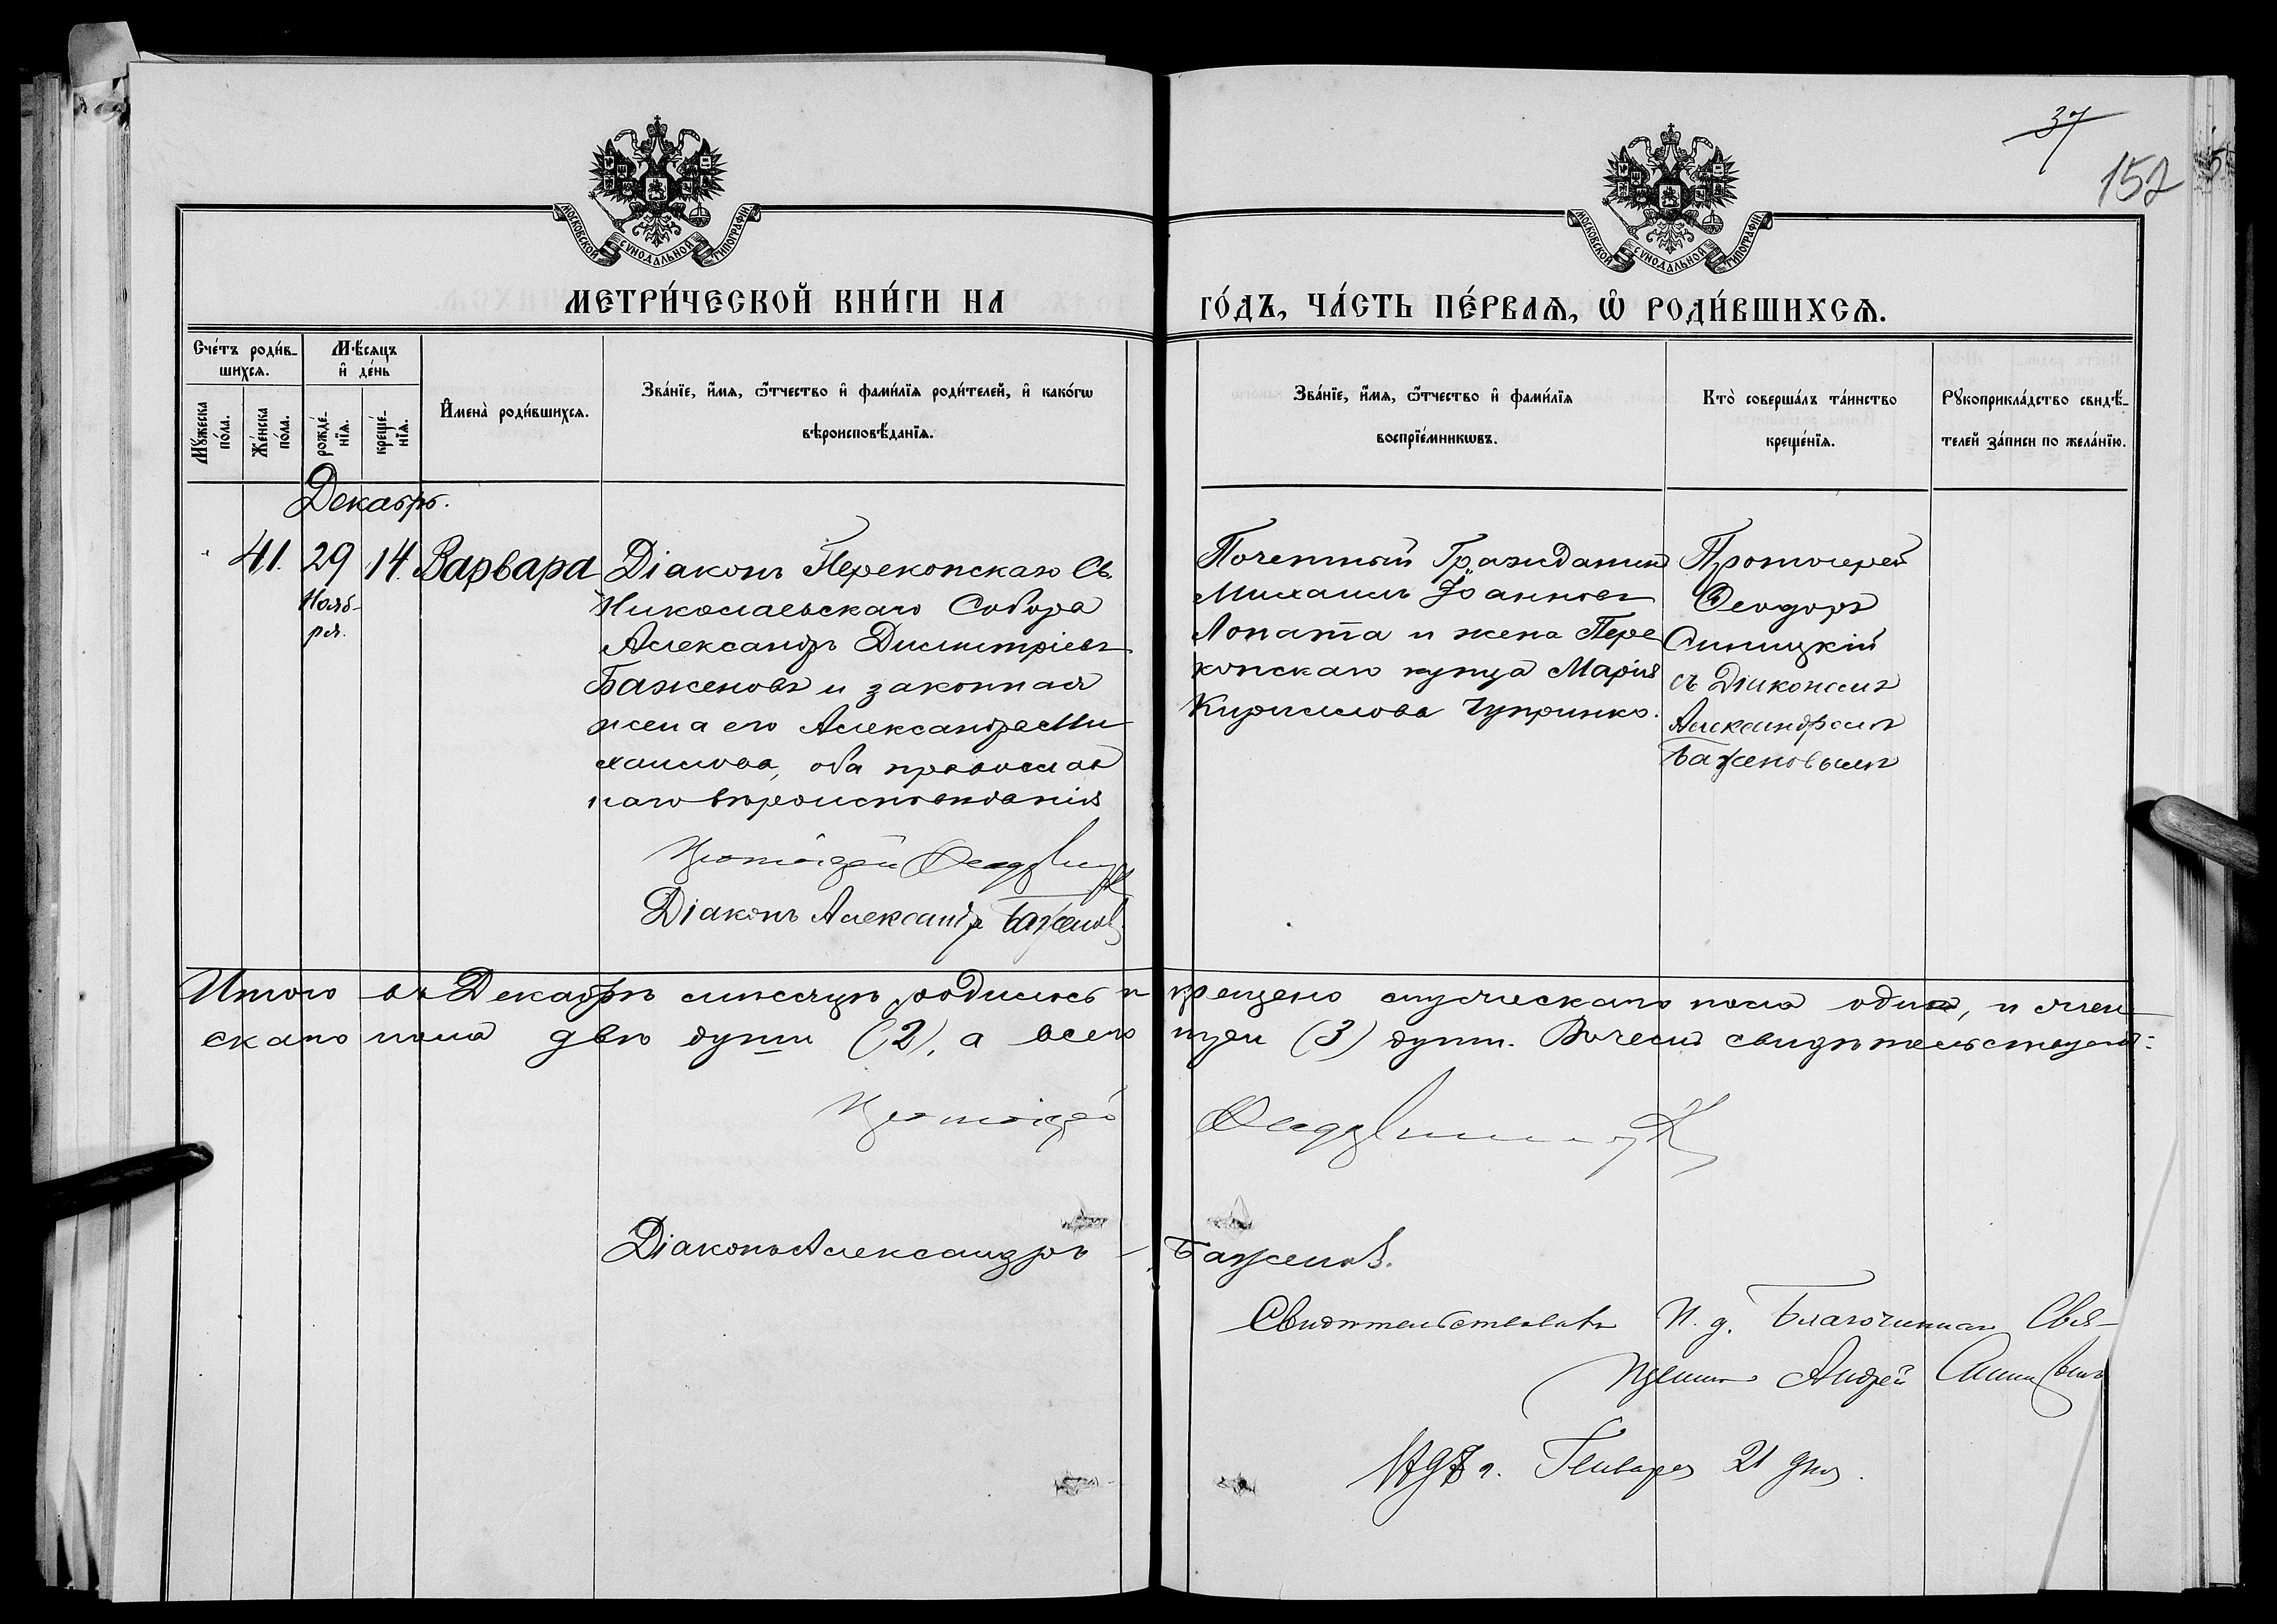 37
152
МОСКОВСКОЙ СѴНОДАЛЬНОЙ ТИПОГРАФІИ
МОСКОВСКОЙ СѴНОДАЛЬНОЙ ТИПОГРАФІИ
МЕТРИ́ЧЕСКОЙ КНИ́ГИ НА
ГО́ДЪ, ЧА́СТЬ ПЕ́РВАѦ, Ѡ҆ РОДИ́ВШИХСѦ.
Сче́тъ роди́в-
шихсѧ.
Мѣ́сѧцъ
и҆ де́нь
Мꙋ́жеска
по́ла.
Же́нска
по́ла.
рожде́-
нїѧ.
креще́-
нїѧ.
И҆мена̀ роди́вшихсѧ.
Зва́нїе, и҆́мѧ, ѻ҆́тчество и҆ фами́лїѧ роди́телей, и҆ како́гѡ
вѣроисповѣ́данїѧ.
Зва́нїе, и҆́мѧ, ѻ҆́тчество и҆ фами́лїѧ
воспрїе́мникѡвъ.
Кто̀ соверша́лъ та́инство
креще́нїѧ.
Рꙋкоприкла́дство свидѣ́-
телей за́писи по жела́нїю.
Декабрь.
41. 29 14. Варвара
Нояб-
ря.
Діаконъ Перекопскаго Св.
Николаевскаго Собора
Александръ Димитріевъ
Баженовъ и законная
жена его Александра Ми
хаилова, оба православ
наго вѣроисповѣданія
Протоіерей Ѳеодоръ Синицкій
Діаконъ Александръ Баженовъ
Почетный Гражданинъ
Михаилъ Іоанновъ
Лопата и жена Пере
копскаго купца Марія
Кириллова Чупринко.
Протоіерей
Ѳеодоръ
Синицкій
съ Діакономъ
Александромъ
Баженовымъ
Итого въ Декабрѣ мѣсяцѣ родилось и крещено мужескаго пола одинъ, и жен
скаго пола двѣ души (2), а всего три (3) души. Въ чемъ свидѣтельствуемъ:
Протоіерей Ѳеодоръ Синицкій
Діаконъ Александръ Баженовъ.
Свидѣтельствовалъ И. д. Благочиннаго Свя-
щенникъ Андрей
г. Генваря 21 дня.